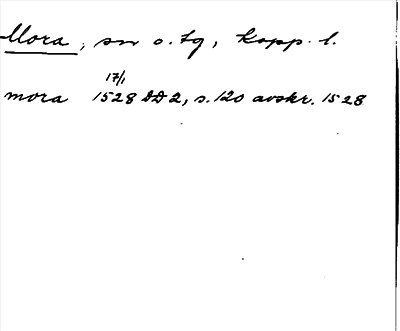 Mora, sn o. tg, Kopp. l.
17/1
mora 1528 DD 2, s. 120 avskr. 1528